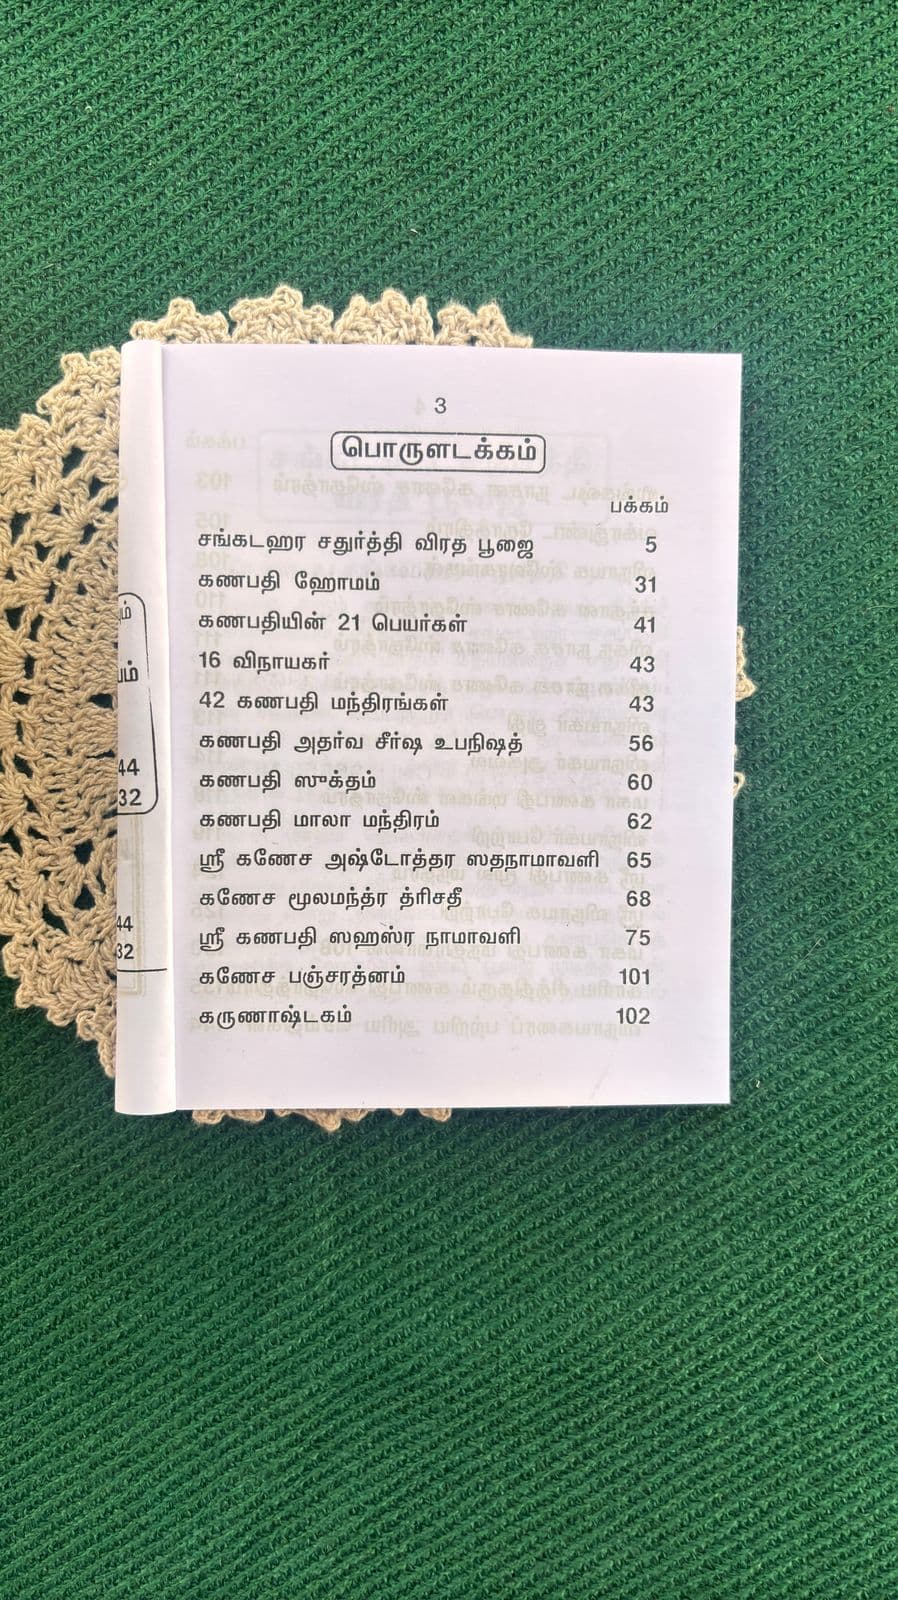 3
பொருளடக்கம்
பக்கம்
சங்கடஹர சதுர்த்தி விரத பூஜை 5
கணபதி ஹோமம் 31
கணபதியின் 21 பெயர்கள் 41
16 விநாயகர் 43
42 கணபதி மந்திரங்கள் 43
கணபதி அதர்வ சீர்ஷ உபநிஷத் 56
கணபதி ஸுக்தம் 60
கணபதி மாலா மந்திரம் 62
ஸ்ரீ கணேச அஷ்டோத்தர ஸதநாமாவளி 65
கணேச மூலமந்த்ர த்ரிசதீ 68
ஸ்ரீ கணபதி ஸஹஸ்ர நாமாவளி 75
கணேச பஞ்சரத்னம் 101
கருணாஷ்டகம் 102
44
32
44
32